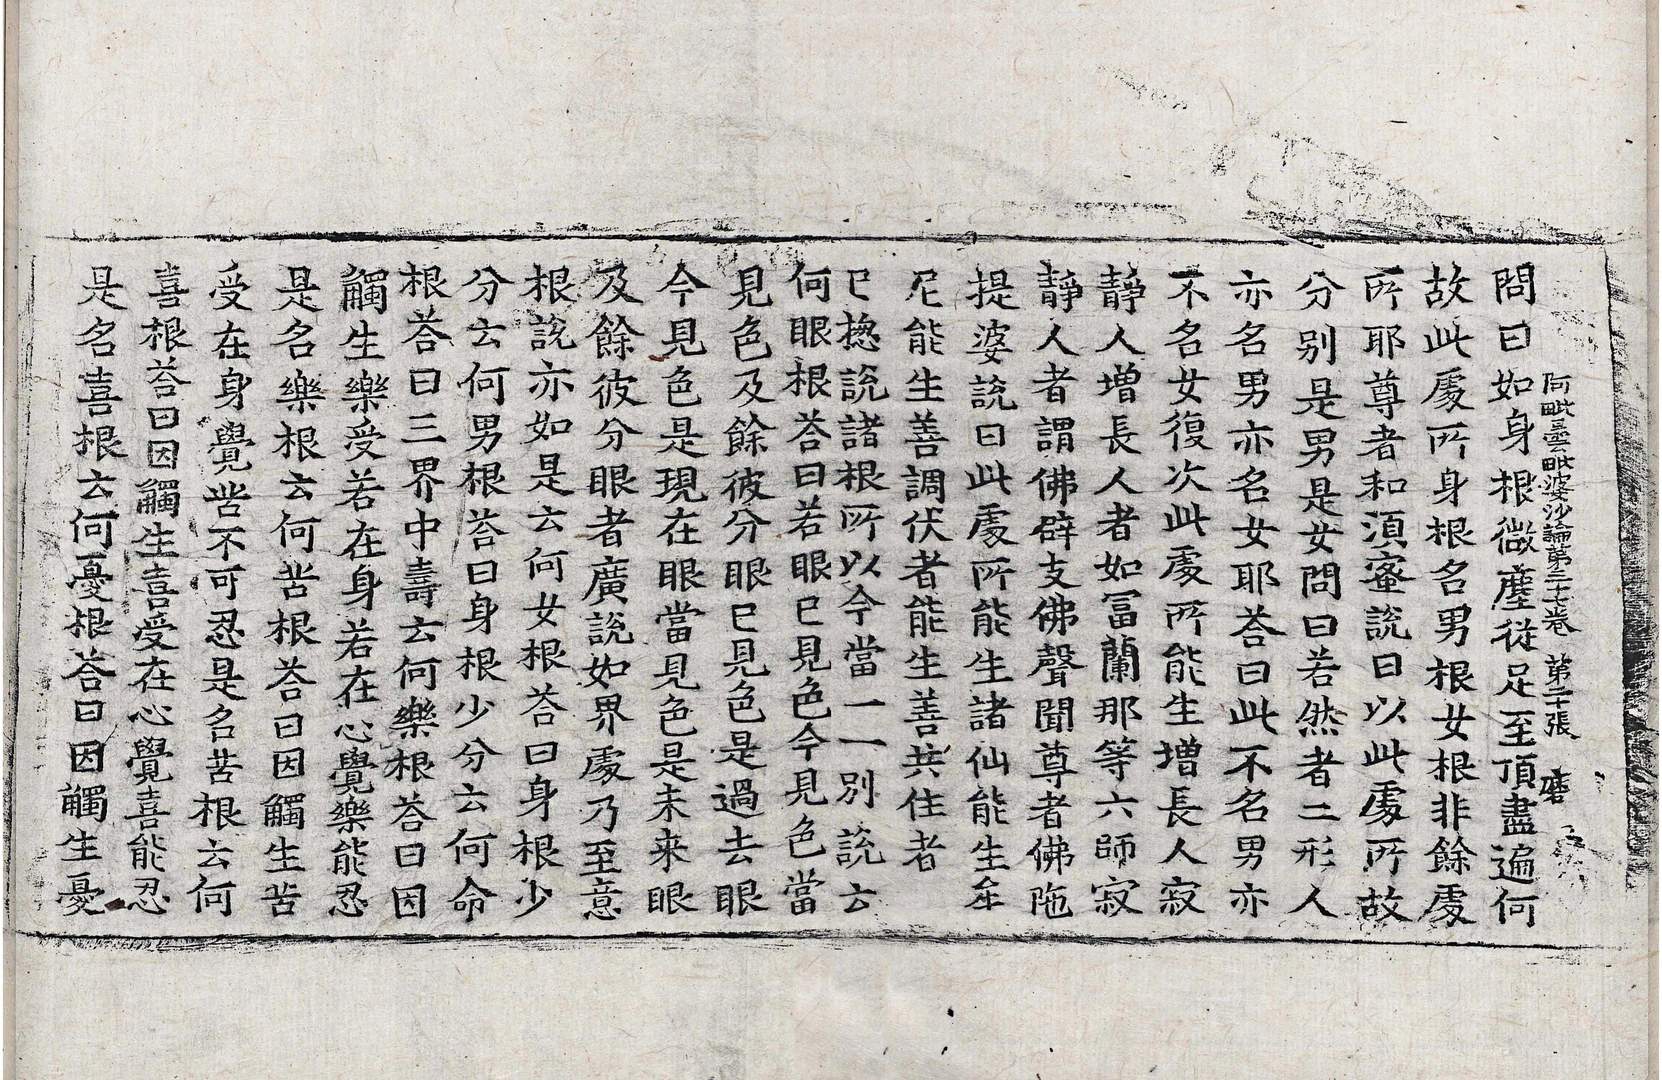 阿毗曇毗婆沙論第三十七卷　第二十張　磨
問曰如身根微塵從足至頂盡遍何
故此處所身根名男根女根非餘處
所耶尊者和須蜜說曰以此處所故
分別是男是女問曰若然者二形人
亦名男亦名女耶荅曰此不名男亦
不名女復次此處所能生增長人寂
靜人增長人者如冨蘭那等六師寂
靜人者謂佛辟支佛聲聞尊者佛陁
提婆說曰此處所能生諸仙能生牟
尼能生善調伏者能生善共住者
已揔說諸根所以今當一一別說云
何眼根荅曰若眼已見色今見色當
見色及餘彼分眼已見色是過去眼
今見色是現在眼當見色是未來眼
及餘彼分眼者廣說如界處乃至意
根說亦如是云何女根荅曰身根少
分云何男根荅曰身根少分云何命
根荅曰三界中壽云何樂根荅曰因
觸生樂受若在身若在心覺樂能忍
是名樂根云何苦根荅曰因觸生苦
受在身覺苦不可忍是名苦根云何
喜根荅曰因觸生喜受在心覺喜能忍
是名喜根云何憂根荅曰因觸生憂